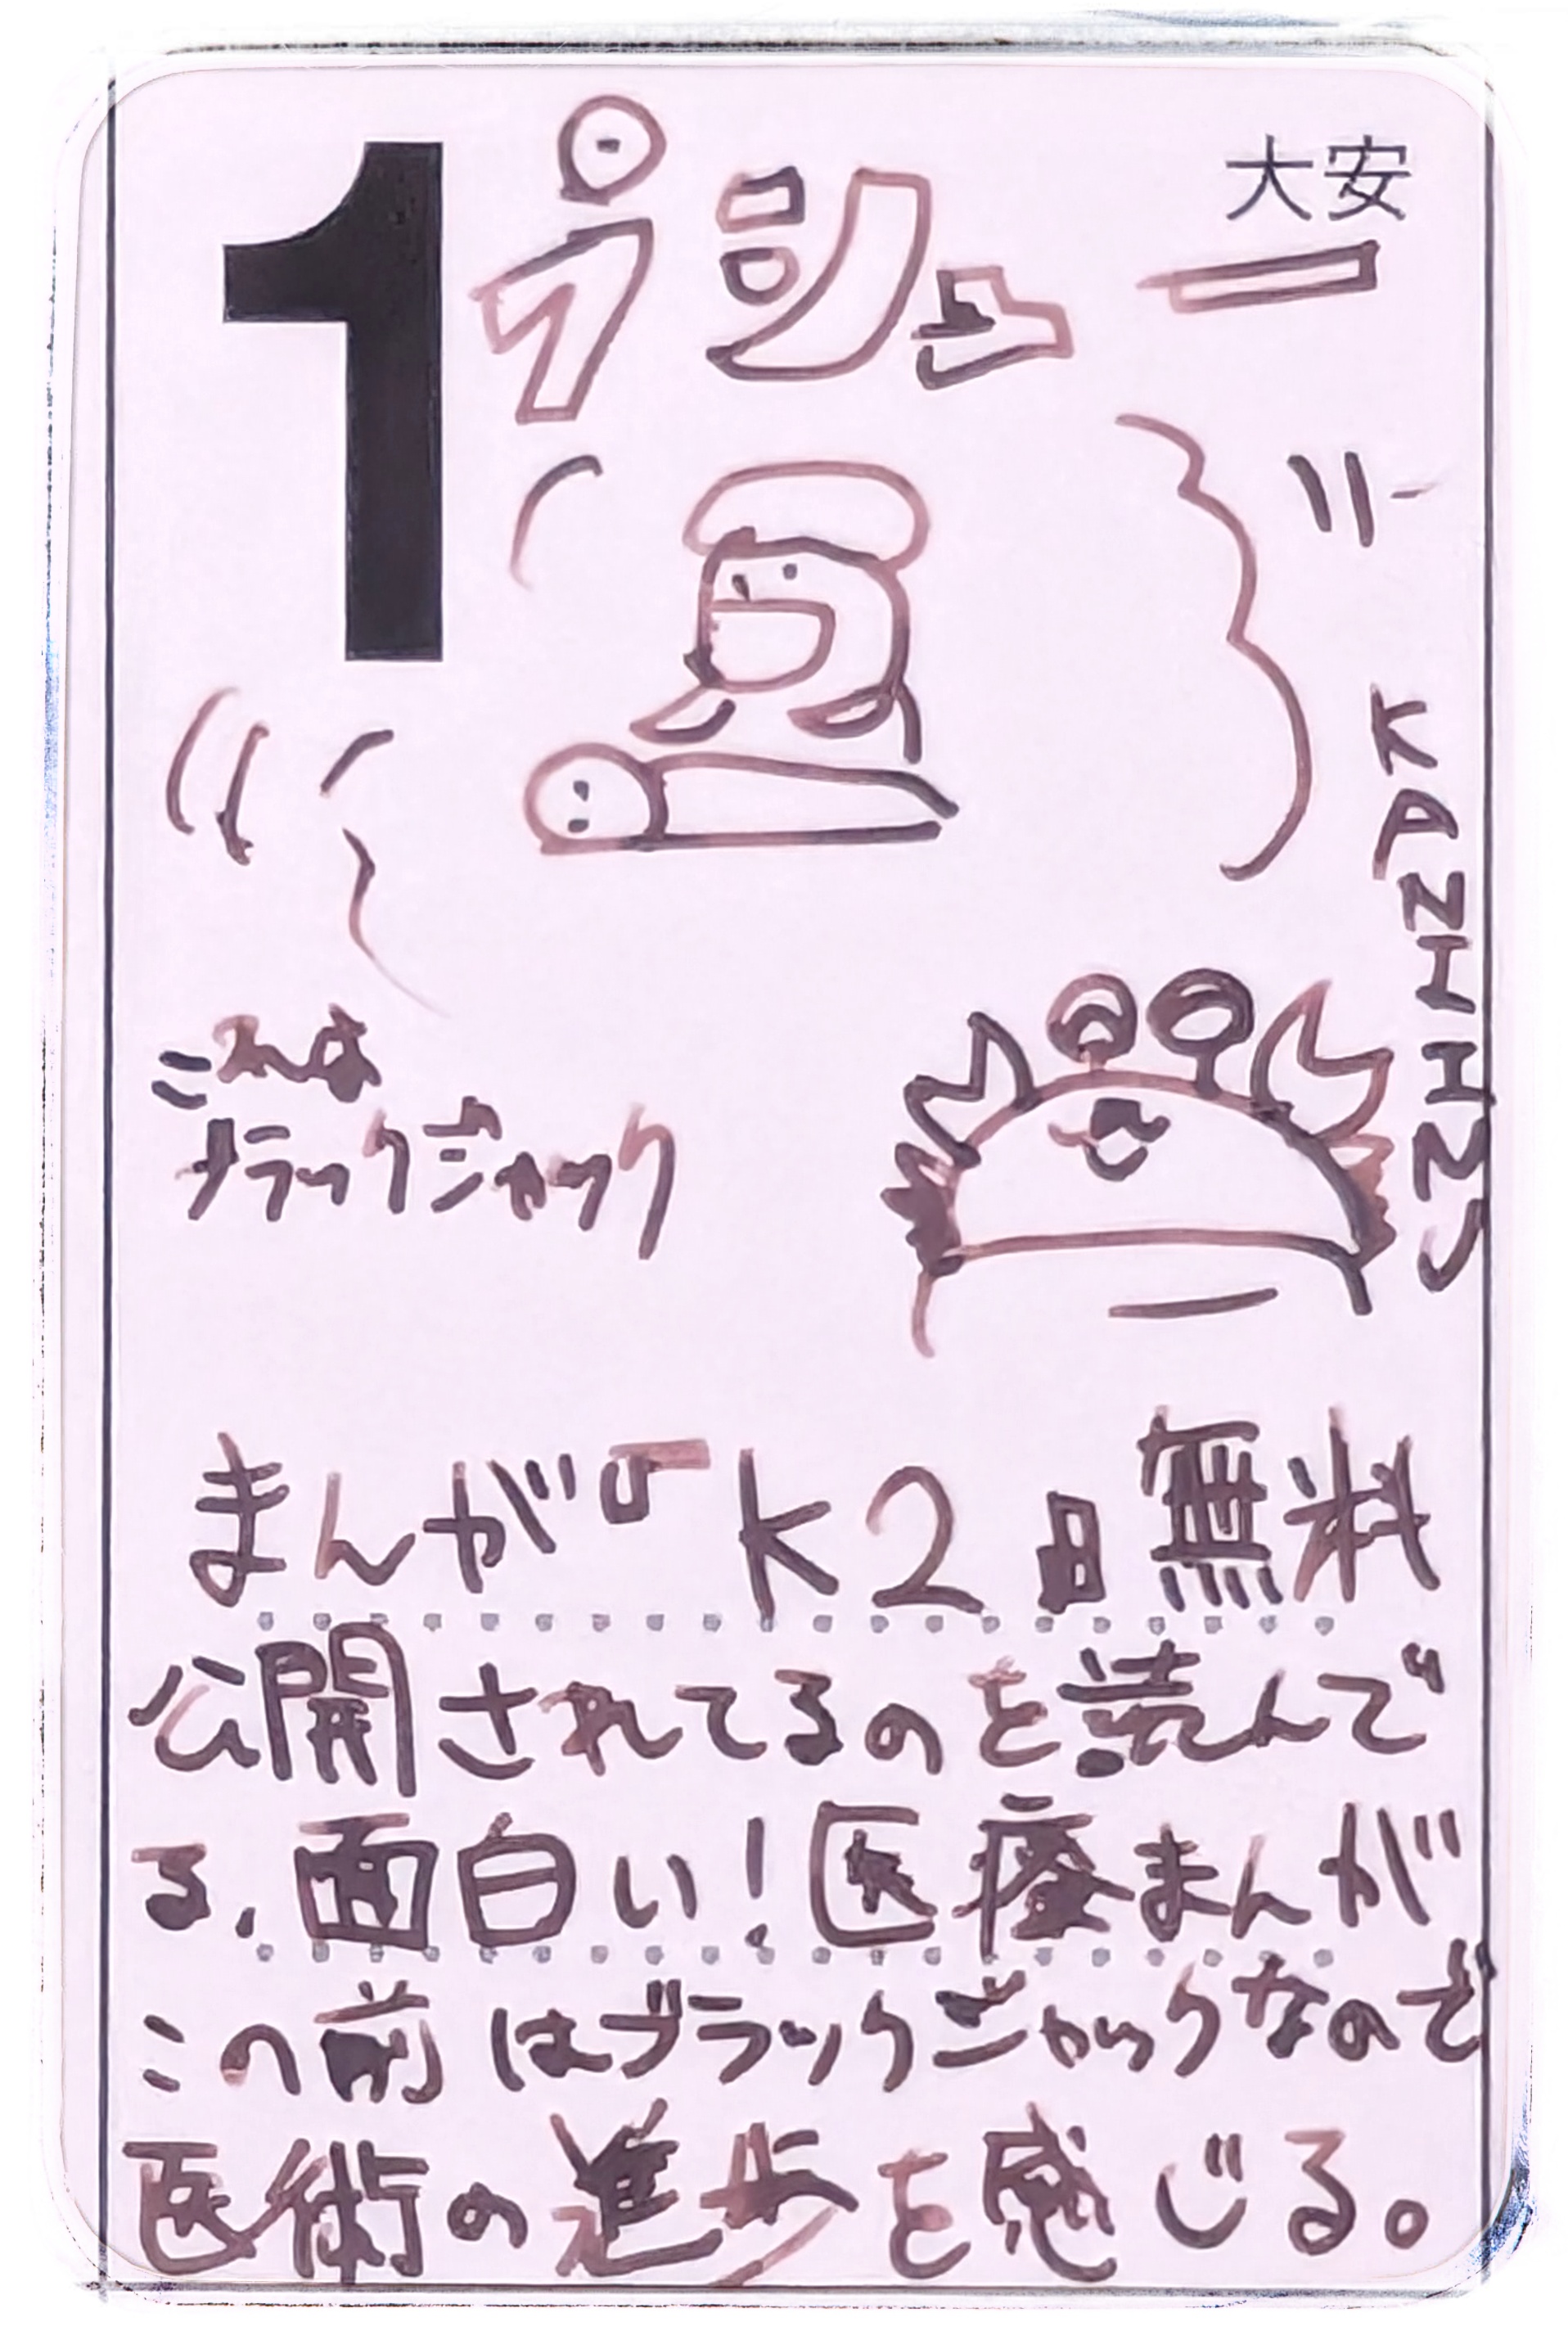 1
大安
プシュー
KANIINJ
これは
ブラックジャック
まんが『K2』無料
公開されてるのを読んで
る、面白い！医療まんが
この前はブラックジャックなので
医術の進歩を感じる。